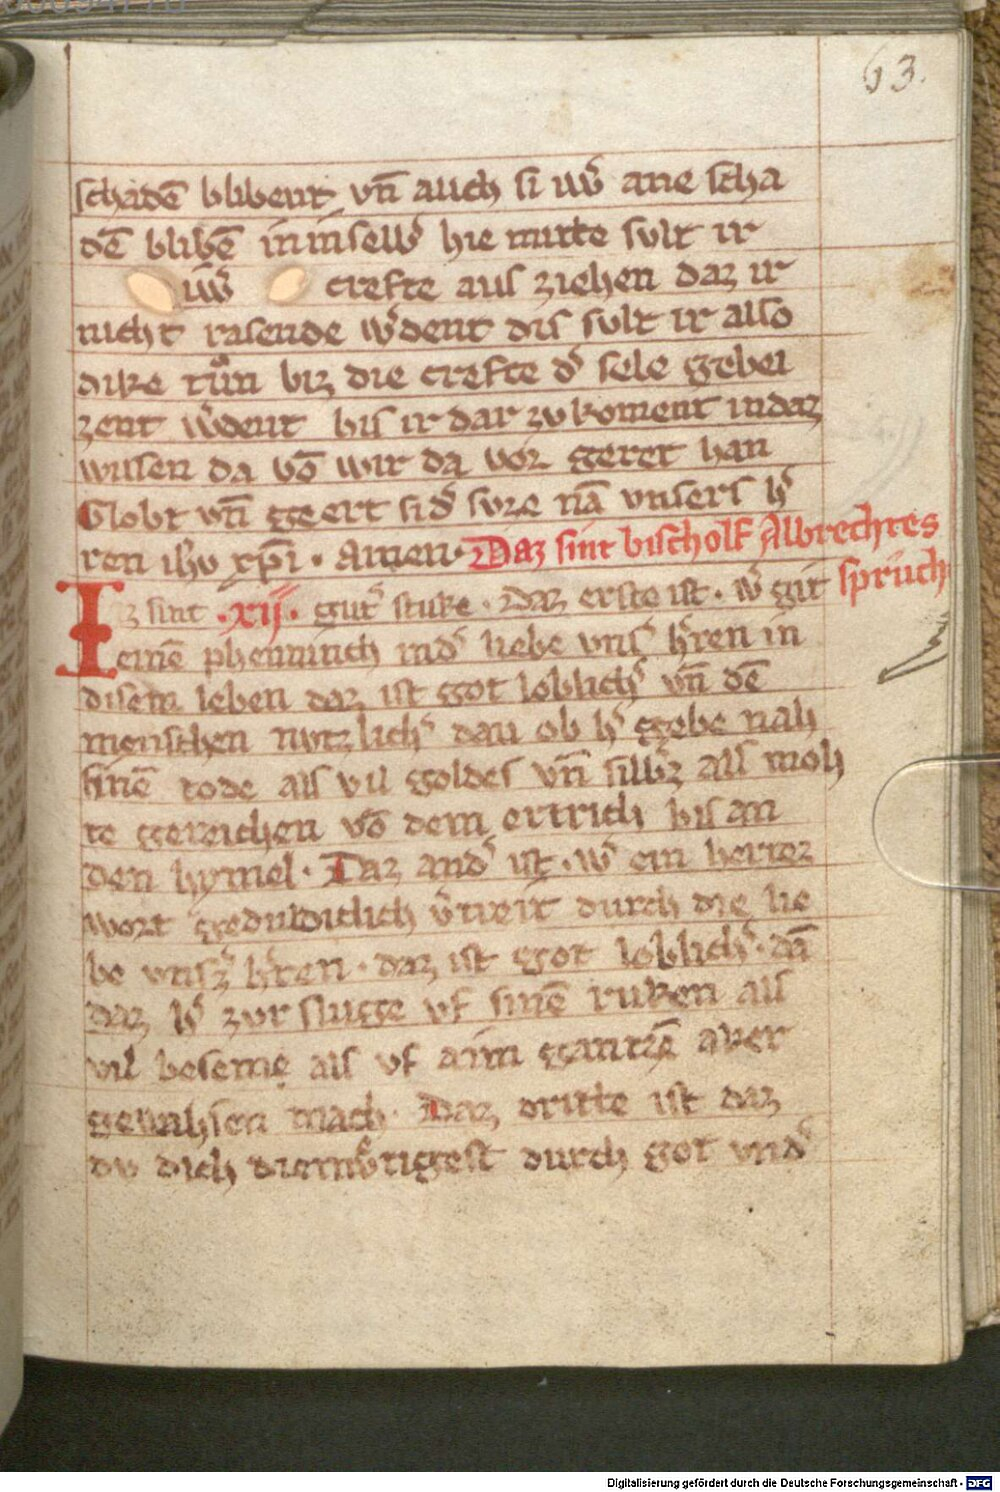 63.
schadē blibent vn̄ auch si iuw̾ ane scha
dē blibē in in selb̾ hie mitte sult ir
iuw̾ crefte aus ziehen daz ir
nicht rasende w̾dent dis sult ir also
dike tůn biz die crefte d̾ sele gebei
zent w̾dent bis ir dar zv koment in daz
wisen da vō wir da vor geret han
Globt vn̄ geert si d̾ svze nā vnsers h̾
ren ih̄v xp̄i · Amen · Daz sint bischolf Albrechtes
Iz sint · xij · gut̾ stuke · Daz erste ist · w̾ git sprůch
einē phenninch in d̾ liebe vns̾ h̾ren in
disem leben daz ist got loblich̾ vn̄ dē
menschen nvtzlich̾ dan ob h̾ ggebe nah
sinē tode als vil goldes vn̄ silb̾z als moh
te gereichen vō dem ertrich bis an
den hymel · Daz and̾ ist · w̾ ein hertez
wort gedulditlich v̾treit durch die lie
be vns̾z h̾ren · daz ist got loblich̾ · dā
daz h̾ zvr sluge vf sinē ruken als
vil beseme als vf aim gantzē aker
gewahsen mach · Daz dritte ist daz
dv dich diemv̊tigest durch got vnd̾
Digitalisierung gefördert durch die Deutsche Forschungsgemeinschaft - DFG